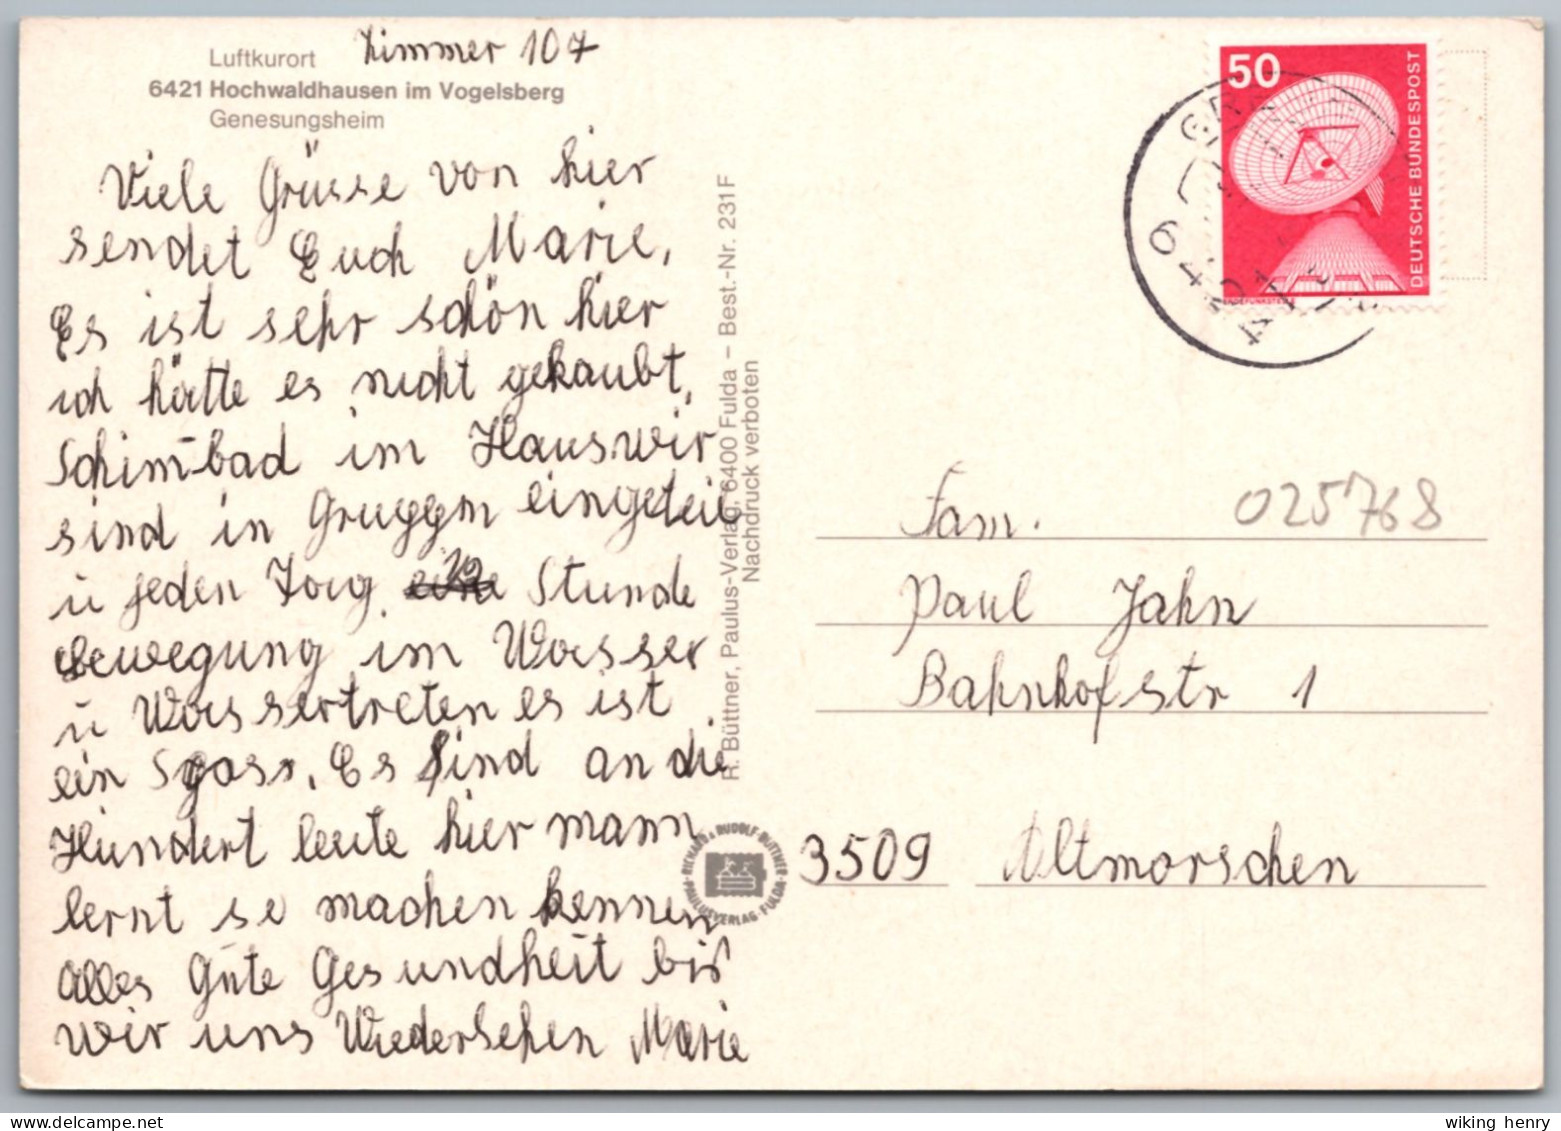 Luftkurort
Zimmer 107
6421 Hochwaldhausen im Vogelsberg
Genesungsheim
Viele Grüsse von hier
sendet Euch Marie,
Es ist sehr schön hier
ich hätte es nicht gekaubt,
Schimbad im Haus wir
sind in Gruggm eingeteil
u jeden Tag Stunde
bewegung im Wasser
u Wassertreten es ist
ein Spass. Es sind an die
Hundert leute hier mann
lernt se machen kennen
Alles Gute Gesundheit bis
wir uns Wiedersehen Marie
R. Büttner, Paulus-Verlag, 6400 Fulda – Best.-Nr. 231F
Nachdruck verboten
RICHARD & RUDOLF BÜTTNER
PAULUSVERLAG FULDA
50
DEUTSCHE BUNDESPOST
6424
025768
Fam.
Paul Jahn
Bahnhofstr 1
3509 Altmorschen
wiking henry